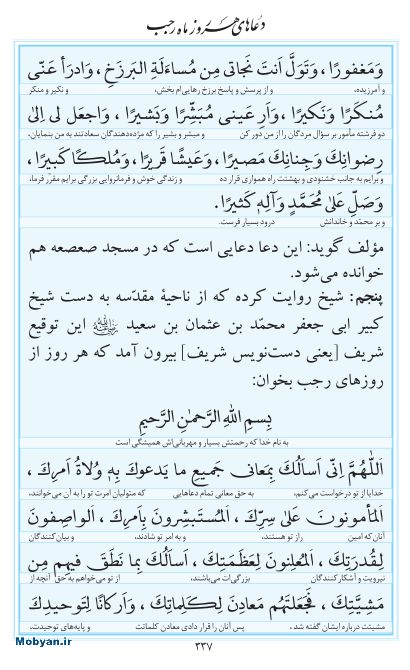 دعاهای هر روز ماه رجب
وَمَغفورًا ، وَتَوَلَّ اَنتَ نَجاتى مِن مُساءَلَةِ البَرزَخِ ، وَادرَأ عَنّى
و آمرزیده، و از پرسش و پاسخ برزخ رهایی‌ام بخش، و نکیر و منکر
مُنكَرًا وَنَكيرًا ، وَاَرِ عَينى مُبَشِّرًا وَبَشيرًا ، وَاجعَل لى اِلىٰ
دو فرشته مأمور بر سؤال مردگان را از من دور کن و مبشر و بشیر را که مژده‌دهندگان سعادتند به من بنمایان،
رِضوانِكَ وَجِنانِكَ مَصيرًا ، وَعَيشًا قَريرًا ، وَمُلكًا كَبيرًا ،
و برایم به جانب خشنودی و بهشتت راه همواری قرار ده و زندگی خوش و فرمانروایی بزرگی برایم مقرّر فرما،
وَصَلِّ عَلىٰ مُحَمَّدٍ وَآلِهٖ كَثيرًا.
و بر محمّد و خاندانش درود بسیار فرست.
مؤلف گوید: این دعا دعایی است که در مسجد صعصعه هم
خوانده می‌شود.
پنجم: شیخ روایت کرده که از ناحیهٔ مقدّسه به دست شیخ
کبیر ابی جعفر محمّد بن عثمان بن سعید این توقیع
شریف [یعنی دست‌نویس شریف] بیرون آمد که هر روز از
روزهای رجب بخوان:
بِسمِ اللهِ الرَّحمٰنِ الرَّحيمِ
به نام خدا که رحمتش بسیار و مهربانی‌اش همیشگی است
اَللّٰهُمَّ اِنّى اَسأَلُكَ بِمَعانى جَميعِ ما يَدعوكَ بِهٖ وُلاةُ اَمرِكَ ،
خدایا از تو درخواست می‌کنم، به حق معانی تمام دعاهایی که متولیان امرت تو را به آن می‌خوانند،
اَلمَأمونونَ عَلىٰ سِرِّكَ ، اَلمُستَبشِرونَ بِاَمرِكَ ، اَلواصِفونَ
آنان که امین راز تو هستند، و به امر تو شادند، و بیان کنندگان
لِقُدرَتِكَ ، اَلمُعلِنونَ لِعَظَمَتِكَ ، اَسأَلُكَ بِما نَطَقَ فيهِم مِن
نیرویت و آشکار کنندگان بزرگی‌ات می‌باشند، از تو می‌خواهم به حق آنچه از
مَشيَّتِكَ ، فَجَعَلتَهُم مَعادِنَ لِكَلِماتِكَ ، وَاَركانًا لِتَوحيدِكَ
مشیتت درباره ایشان گفته شد ، پس آنان را قرار دادی معادن کلماتت و پایه‌های توحیدت،
۲۳۷
Mobyan.ir